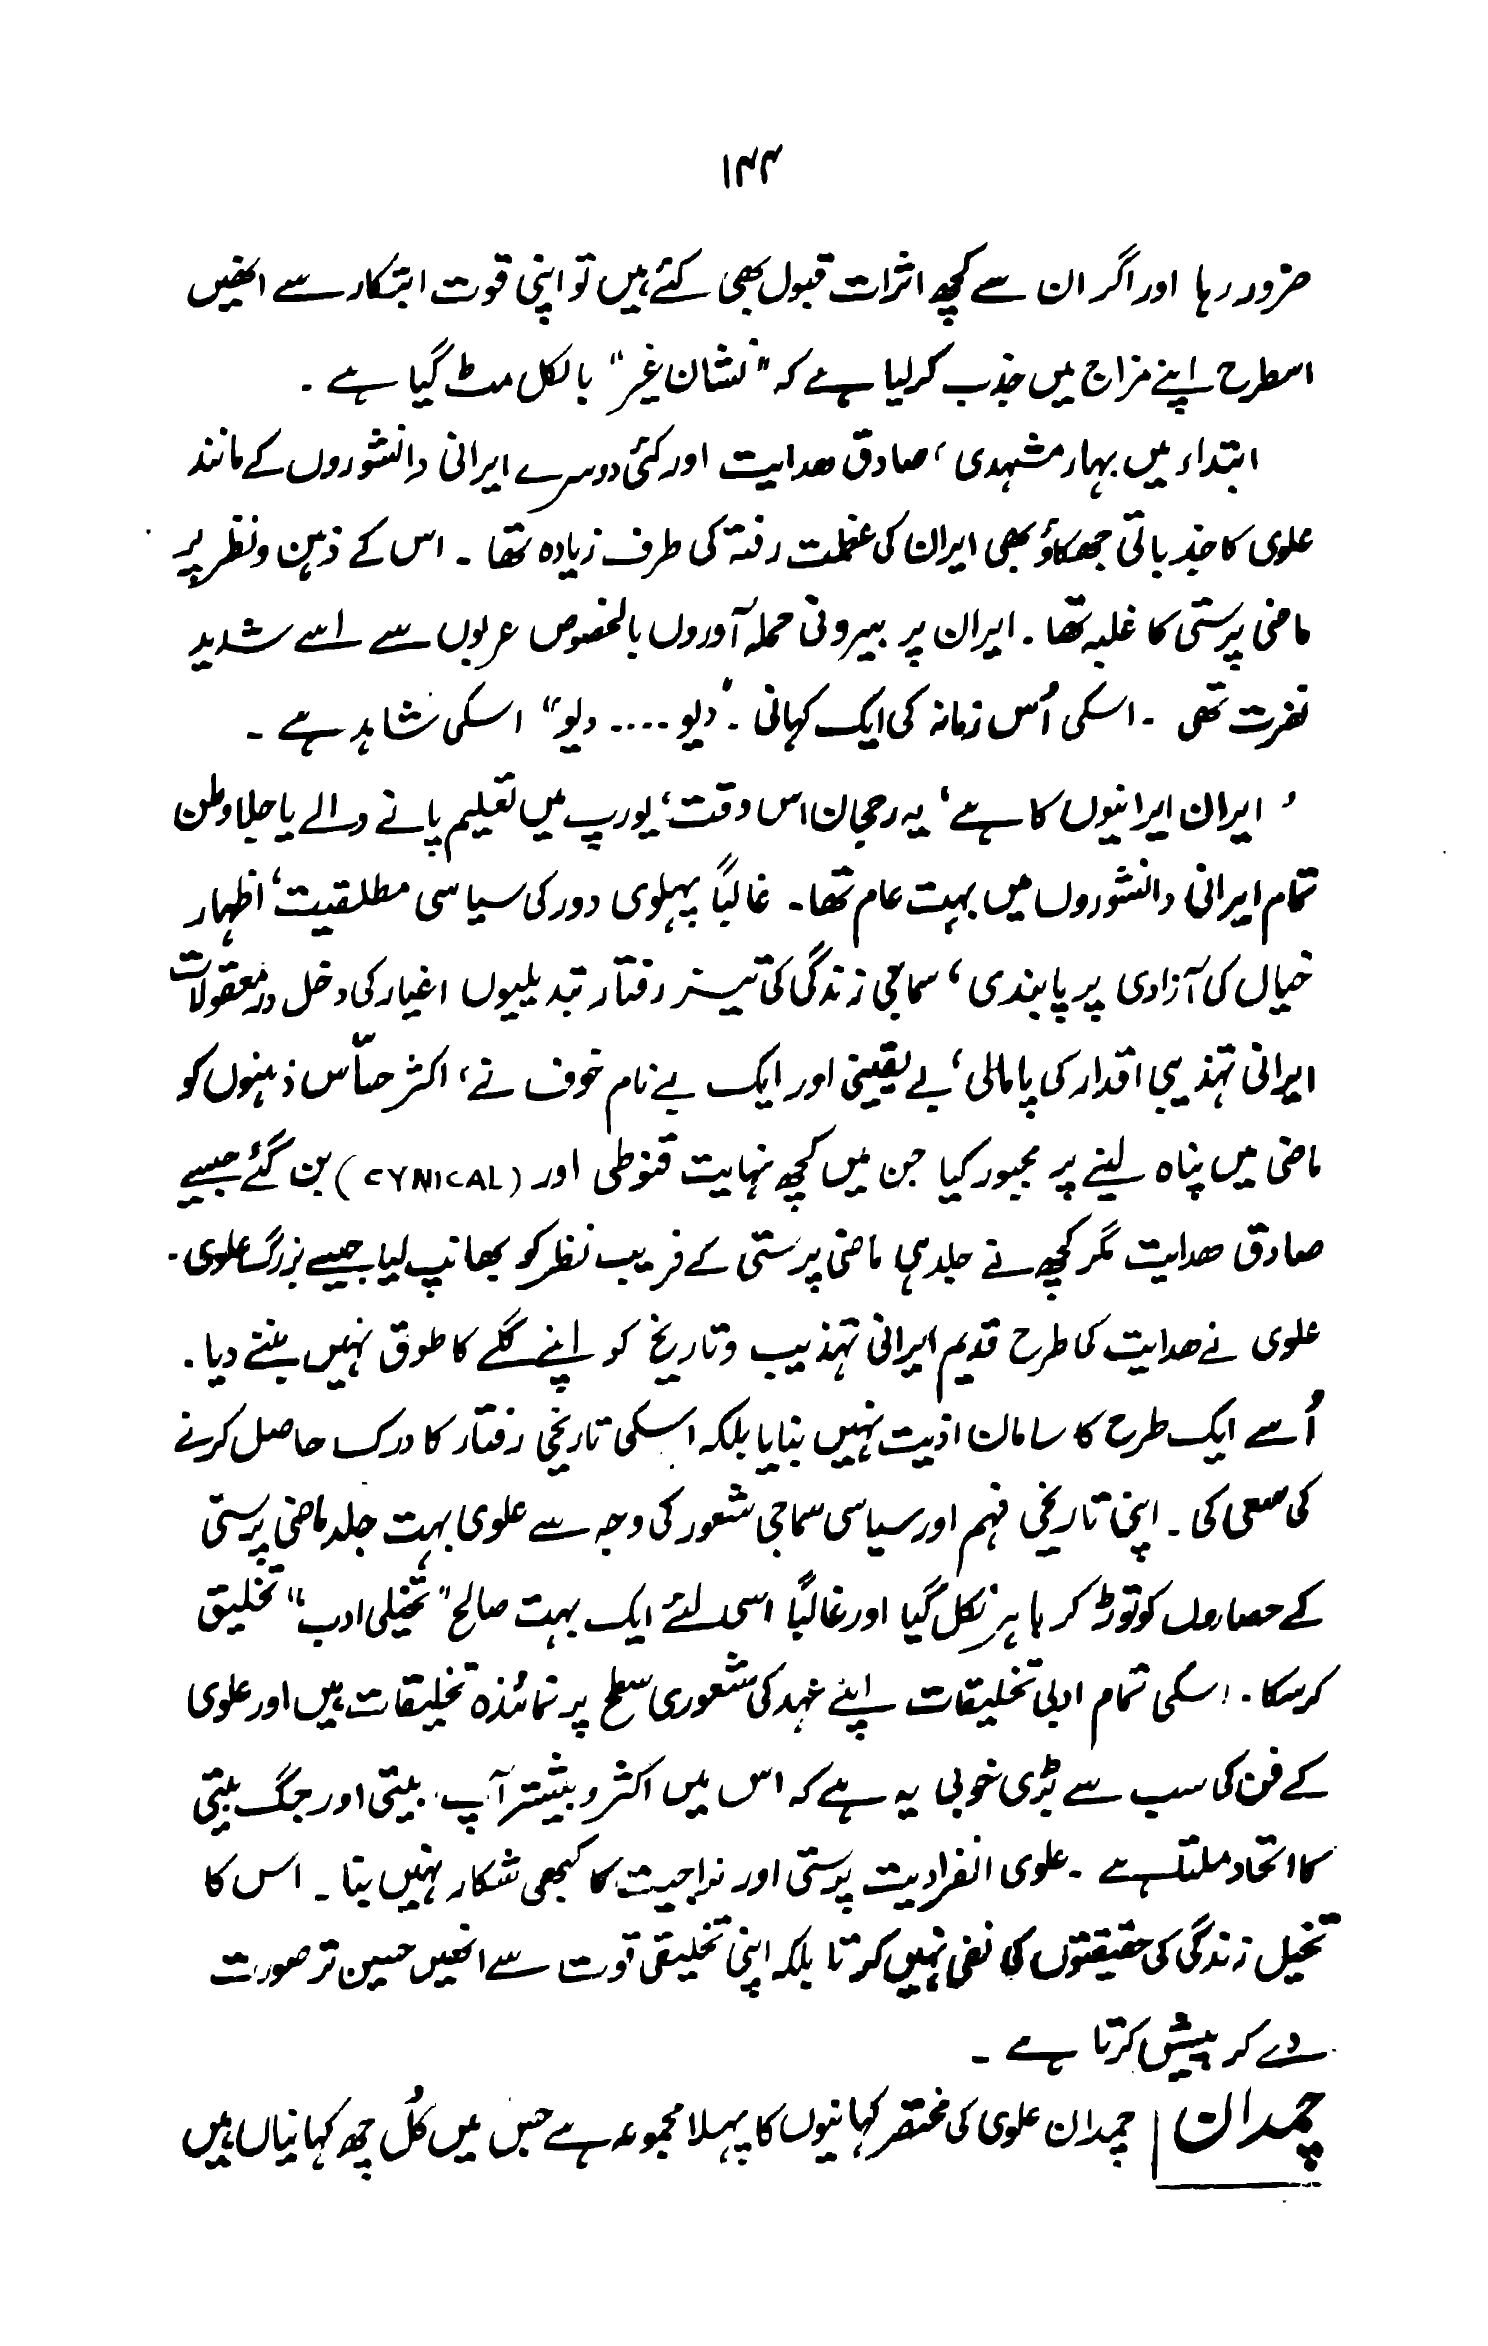 ۱۴۴
ضرور رہا اور اگر ان سے کچھ اثرات قبول بھی کئے ہیں تو اپنی قوت ابتکار سے انھیں
اسطرح اپنے مزاج میں جذب کرلیا ہے کہ "نشان غیر" بالکل مٹ گیا ہے ۔
ابتداء میں بہار مشہدی، صادق ھدایت اور کئی دوسرے ایرانی دانشوروں کے مانند
علوی کا جذباتی جھکاؤ بھی ایران کی عظمت رفتہ کی طرف زیادہ تھا ۔ اس کے ذہن و نظر پر
ماضی پرستی کا غلبہ تھا ۔ ایران پر بیرونی حملہ آوروں بالخصوص عربوں سے اسے شدید
نفرت تھی ۔ اسکی اُس زمانہ کی ایک کہانی ۔ "دیو .... دیو" اسکی شاہد ہے ۔
' ایران ایرانیوں کا ہے ' یہ رحجان اس وقت، یورپ میں تعلیم پانے والے یا جلا وطن
تمام ایرانی دانشوروں میں بہت عام تھا ۔ غالباً پہلوی دور کی سیاسی مطلقیت، اظہار
خیال کی آزادی پر پابندی، سماجی زندگی کی تیز رفتار تبدیلیوں اغیار کی دخل در معقولات
ایرانی تہذیبی اقدار کی پامالی، بے یقینی اور ایک بے نام خوف نے، اکثر حساّس ذہنوں کو
ماضی میں پناہ لینے پر مجبور کیا جن میں کچھ نہایت قنوطی اور (CYNICAL) بن گئے جیسے
صادق ھدایت مگر کچھ نے جلد ہی ماضی پرستی کے فریب نظر کو بھانپ لیا جیسے بزرگ علوی ۔
علوی نے ھدایت کی طرح قدیم ایرانی تہذیب و تاریخ کو اپنے گلے کا طوق نہیں بننے دیا ۔
اُسے ایک طرح کا سامان اذیت نہیں بنایا بلکہ اسکی تاریخی رفتار کا درک حاصل کرنے
کی سعی کی ۔ اپنی تاریخی فہم اور سیاسی سماجی شعور کی وجہ سے علوی بہت جلد ماضی پرستی
کے حصاروں کو توڑ کر باہر نکل گیا اور غالباً اسی لئے ایک بہت صالح "تخیلی ادب" تخلیق
کرسکا ۔ اسکی تمام ادبی تخلیقات اپنے عہد کی شعوری سطح پر نمائندہ تخلیقات ہیں اور علوی
کے فن کی سب سے بڑی خوبی یہ ہے کہ اس میں اکثر و بیشتر آپ بیتی اور جگ بیتی
کا اتحاد ملتا ہے ۔ علوی انفرادیت پرستی اور نراجیت کا کبھی شکار نہیں بنا ۔ اس کا
تخیل زندگی کی حقیقتوں کی نفی نہیں کرتا بلکہ اپنی تخلیقی قوت سے انھیں حسین تر صورت
دے کر پیش کرتا ہے ۔
چمدان چمدان علوی کی مختصر کہانیوں کا پہلا مجموعہ ہے جس میں کُل چھ کہانیاں ہیں